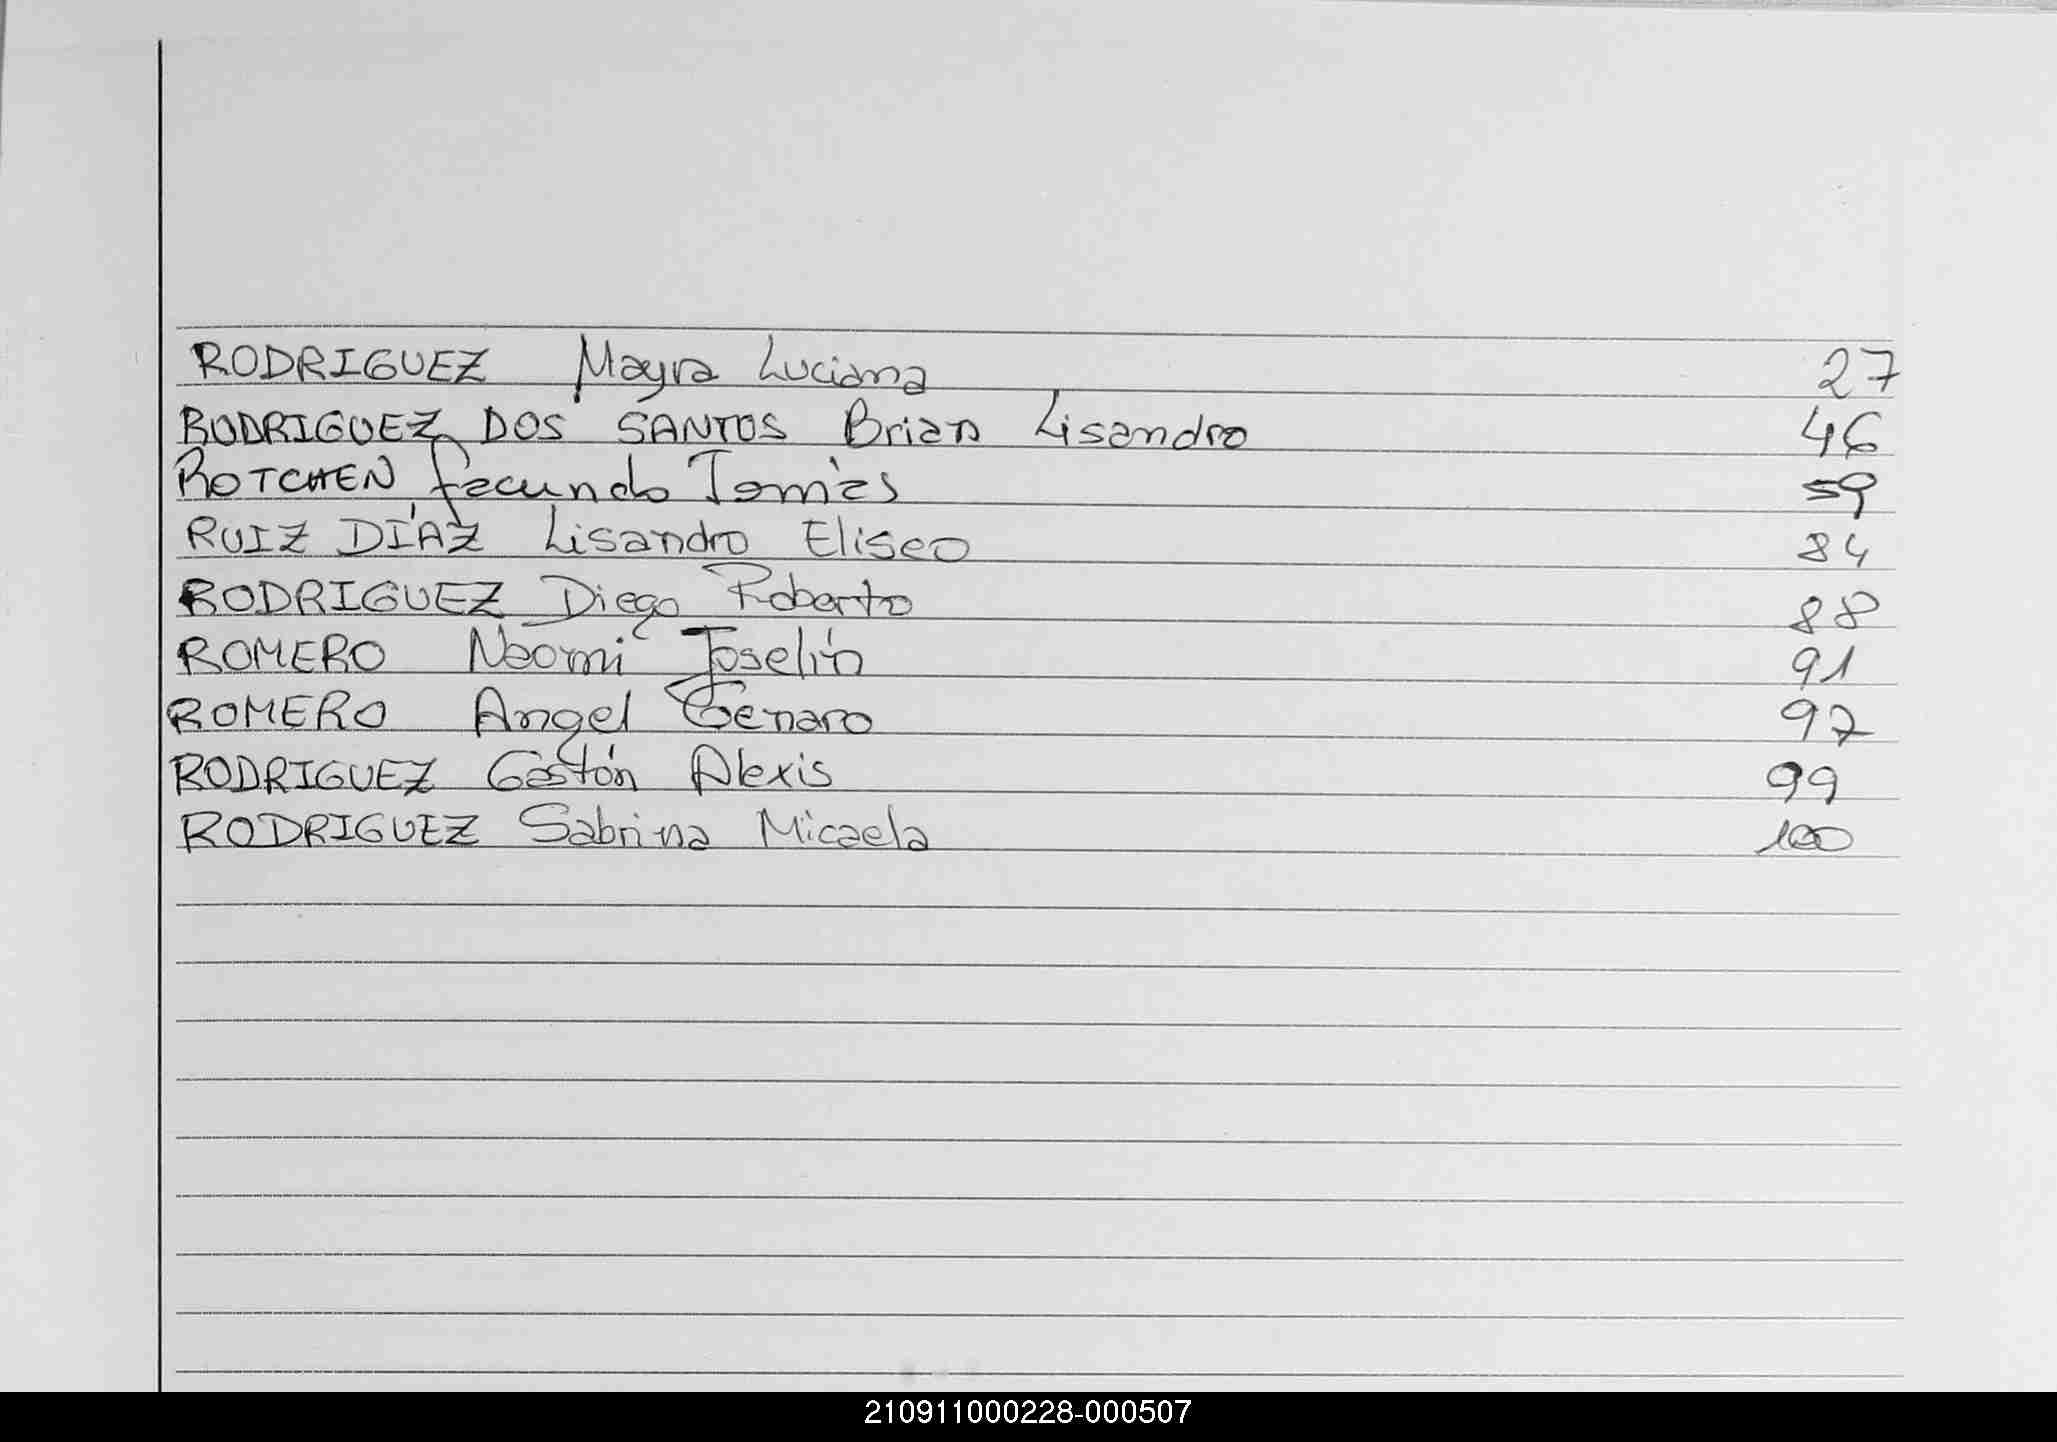 RODRIGUEZ Mayra Luciana 27
RODRIGUEZ DOS SANTOS Brian Lisandro 46
ROTCHEN Facundo Tomás 59
RUIZ DÍAZ Lisandro Eliseo 84
RODRIGUEZ Diego Roberto 88
ROMERO Naomi Joselín 91
ROMERO Angel Genaro 97
RODRIGUEZ Gastón Alexis 99
RODRIGUEZ Sabrina Micaela 100
210911000228-000507